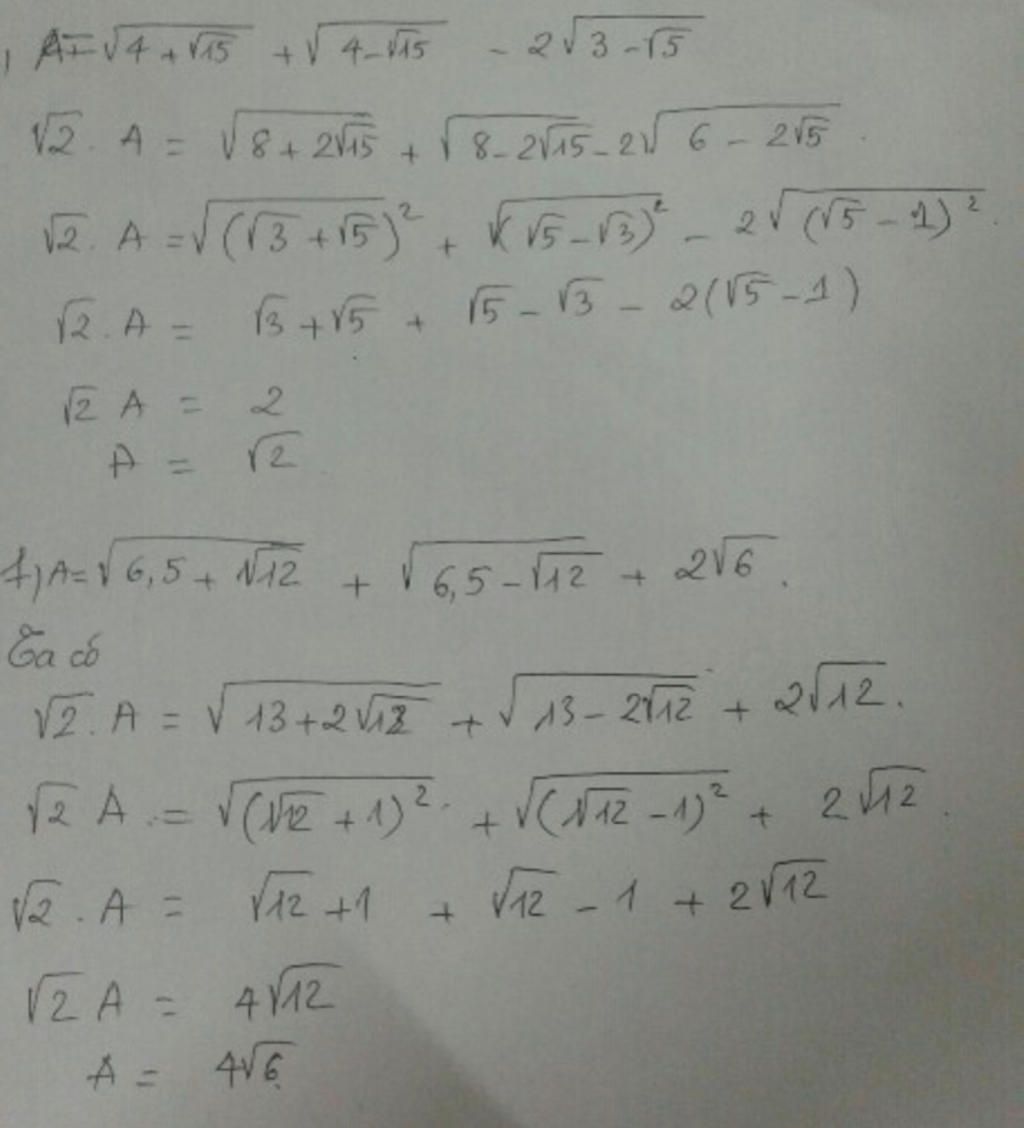 , A = √(4 + √15) + √(4 - √15) - 2√(3 - √5)
√2 . A = √(8 + 2√15) + √(8 - 2√15) - 2√(6 - 2√5) .
√2 . A = √((√3 + √5)²) + √((√5 - √3)²) - 2√((√5 - 1)²) .
√2 . A = √3 + √5 + √5 - √3 - 2(√5 - 1)
√2 A = 2
A = √2
f, A = √(6,5 + √12) + √(6,5 - √12) + 2√6 .
Ta có
√2 . A = √(13 + 2√12) + √(13 - 2√12) + 2√12 .
√2 A . = √((√12 + 1)²) + √((√12 - 1)²) + 2√12 .
√2 . A = √12 + 1 + √12 - 1 + 2√12
√2 A = 4√12
A = 4√6